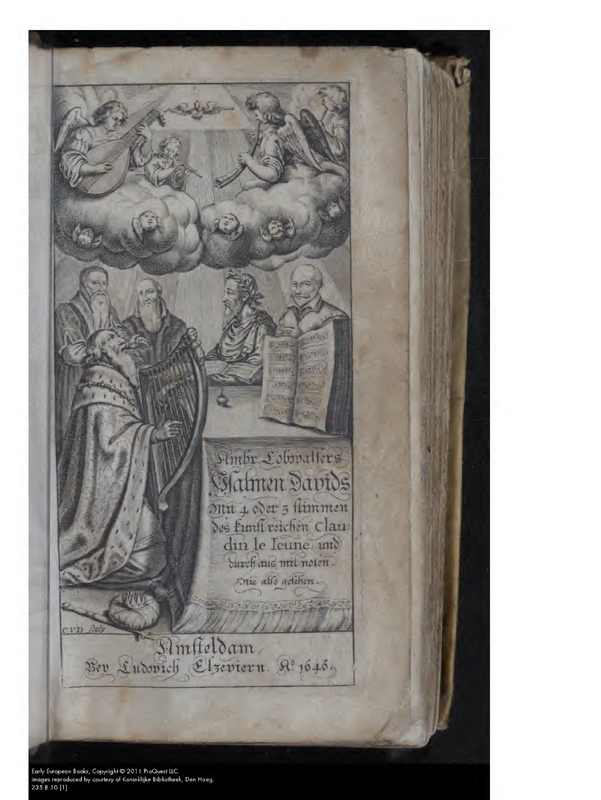 Ambr. Lobwassers
Psalmen Davids
Mit 4 oder 5 stimmen
des kunst reichen Clau-
din le Ieune und
durch aus mit noten.
Nie also gesehen.
C.V.D. sculp
Amsteldam,
Bey Ludovich Elzeviern. Aº 1646.
Early European Books, Copyright © 2011 ProQuest LLC.
Images reproduced by courtesy of Koninklijke Bibliotheek, Den Haag.
235 B 10 [1]